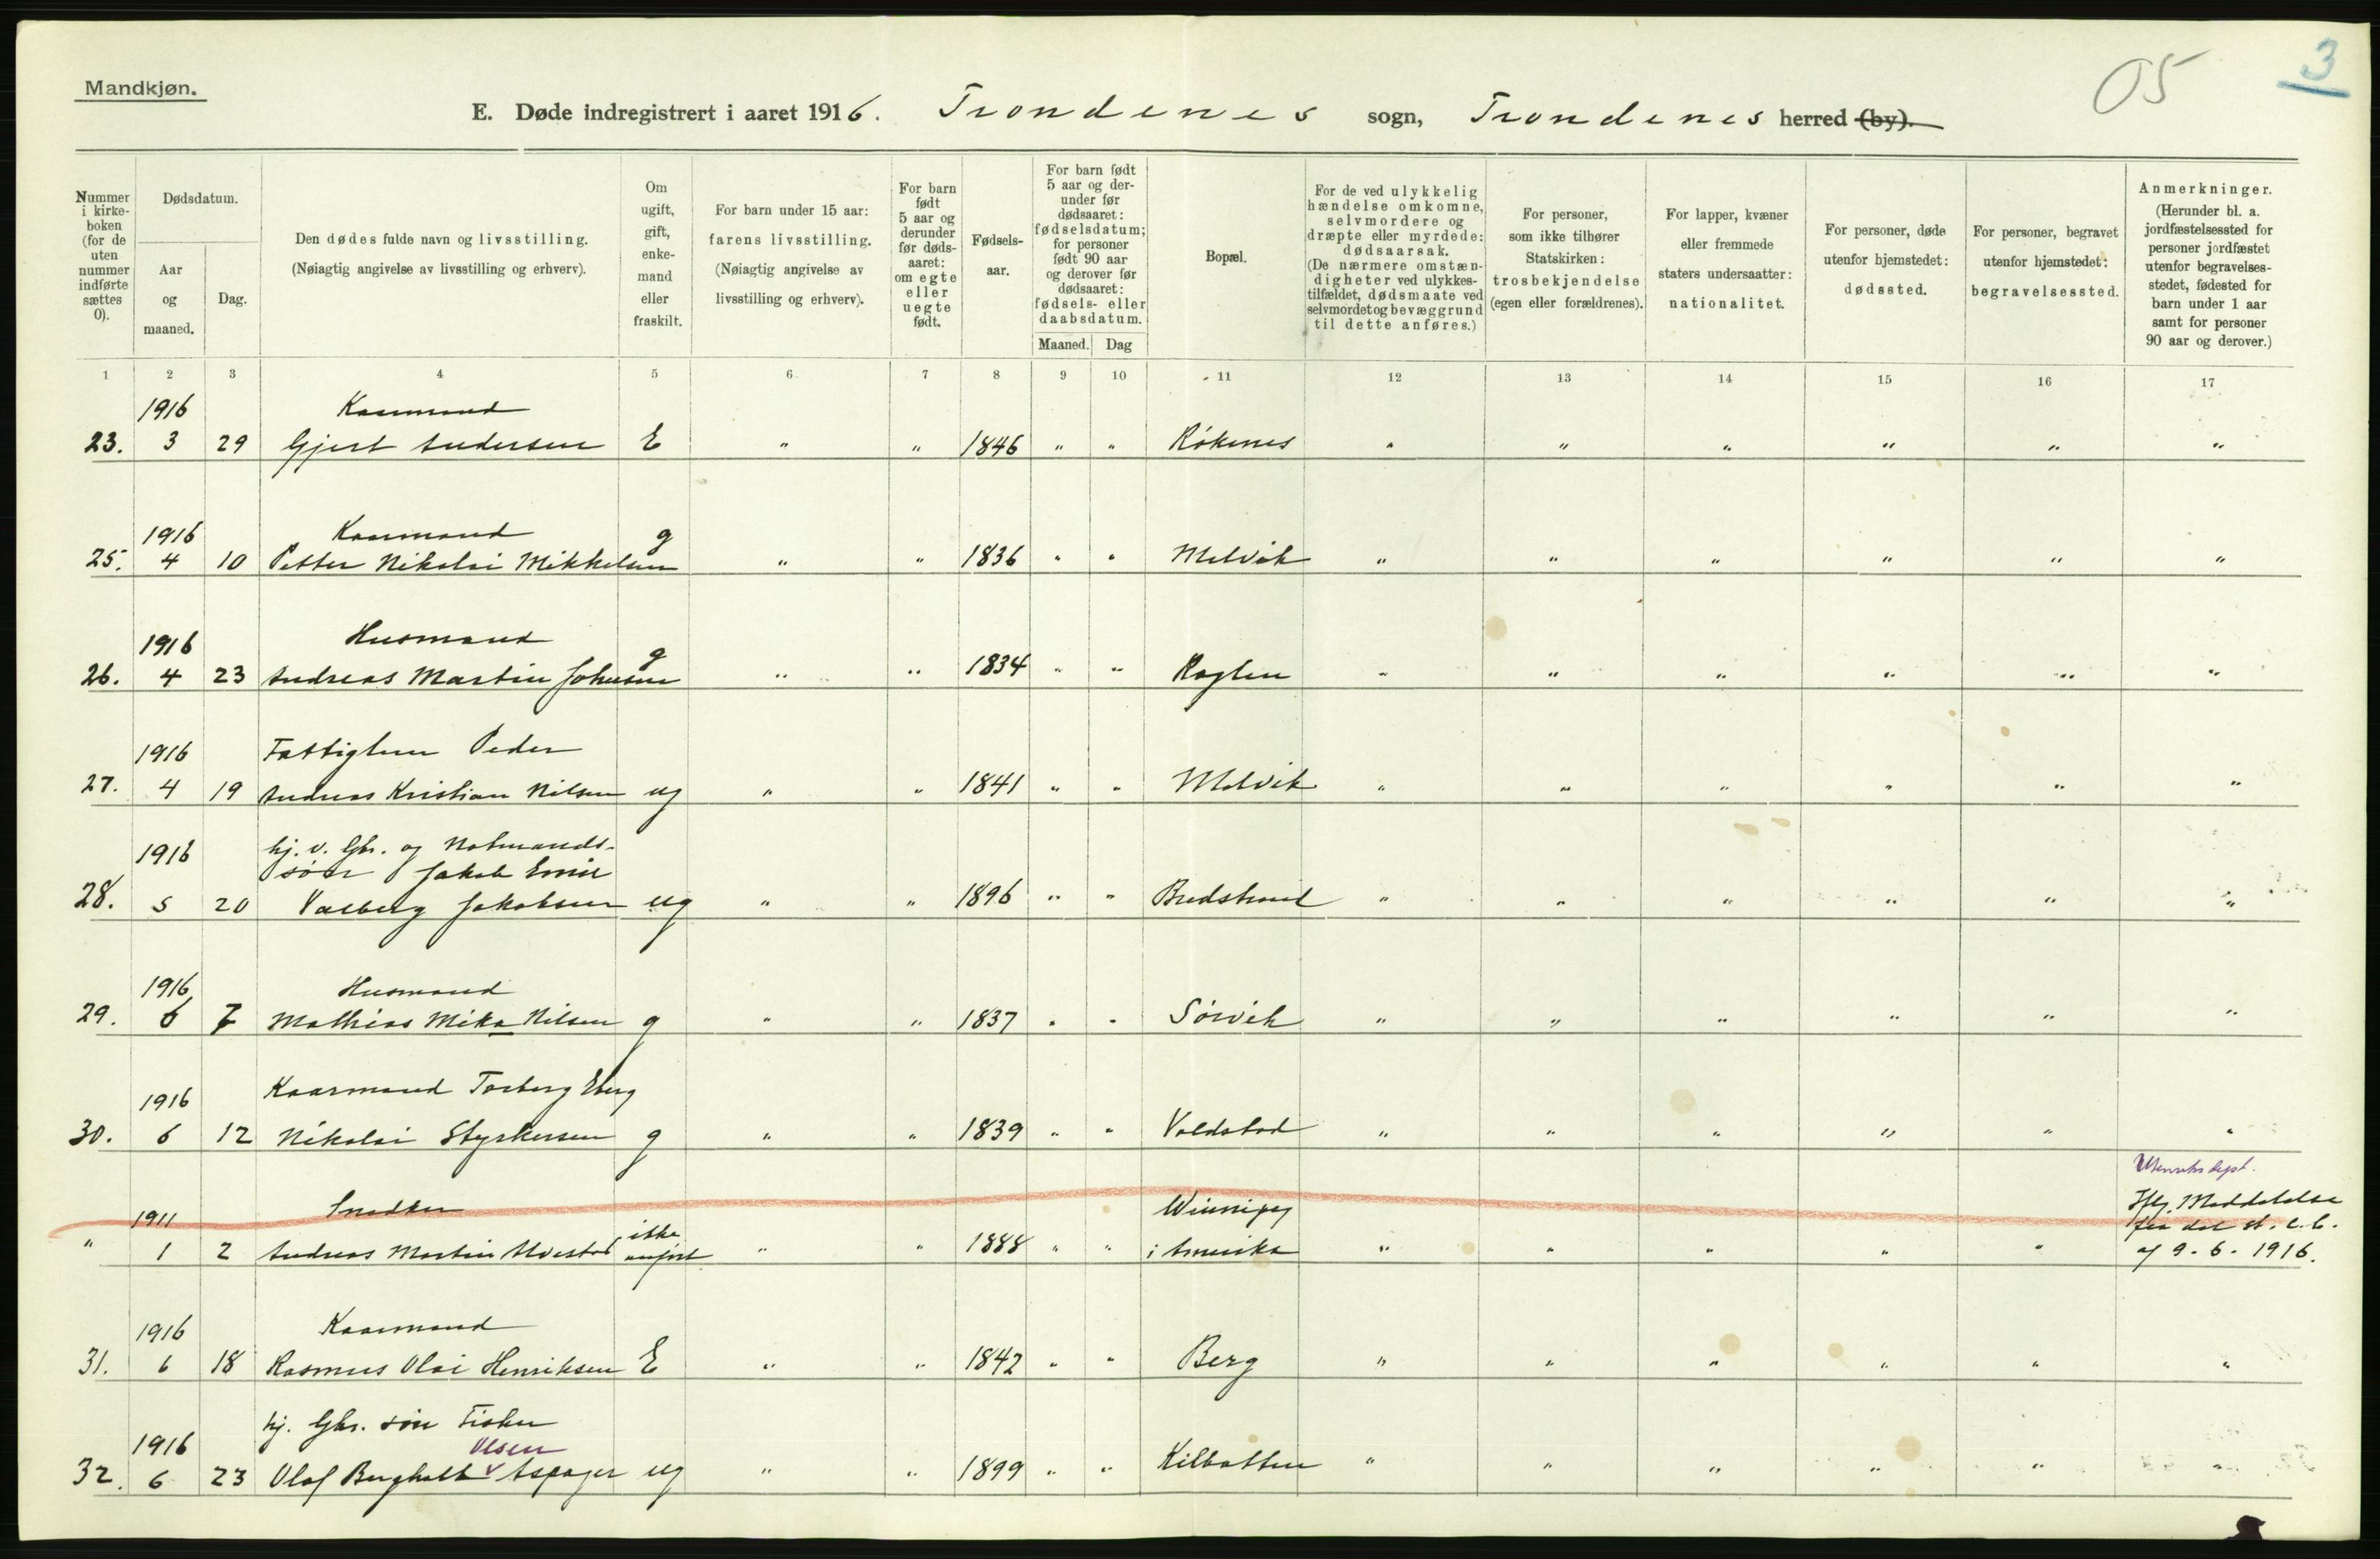 Mandkjøn.
05
3
E. Døde indregistrert i aaret 1916. Trondenes sogn, Trondenes herred (by).
Nummer i kirke-boken (for de uten nummer indførte sættes 0).
Dødsdatum.
Aar og maaned.
Dag.
Den dødes fulde navn og livsstilling.
(Nøiagtig angivelse av livsstilling og erhverv).
Om ugift, gift, enke-mand eller fraskilt.
For barn under 15 aar: farens livsstilling. (Nøiagtig angivelse av livsstilling og erhverv).
For barn født 5 aar og derunder før døds-aaret: om egte eller uegte født.
Fødsels-aar.
For barn født 5 aar og der-under før dødsaaret: fødselsdatum; for personer født 90 aar og derover før dødsaaret: fødsels- eller daabsdatum.
Maaned. Dag
Bopæl.
For de ved ulykkelig hændelse omkomne, selvmordere og dræpte eller myrdede: dødsaarsak. (De nærmere omstæn-digheter ved ulykkes-tilfældet, dødsmaate ved selvmordet og bevæggrund til dette anføres.)
For personer, som ikke tilhører Statskirken: trosbekjendelse (egen eller forældrenes).
For lapper, kvæner eller fremmede staters undersaatter: nationalitet.
For personer, døde utenfor hjemstedet: dødssted.
For personer, begravet utenfor hjemstedet: begravelsessted.
Anmerkninger. (Herunder bl. a. jordfæstelsessted for personer jordfæstet utenfor begravelses-stedet, fødested for barn under 1 aar samt for personer 90 aar og derover.)
1 2 3 4 5 6 7 8 9 10 11 12 13 14 15 16 17
1916 Kaarmand
23. 3 29 Gjert Andersen E " " 1846 " " Røkenes " " " " " "
1916 Kaarmand g
25. 4 10 Petter Nikolai Mikkelsen " " 1836 " " Melvik " " " " " "
1916 Husmand g
26. 4 23 Andreas Martin Johnsen " " 1834 " " Røglen " " " " " "
1916 Fattiglem Peder
27. 4 19 Andreas Kristian Nilsen ug " " 1841 " " Melvik " " " " " "
1916 hj. v. Gbr. og Notmands-
søn Jakob Emil
28. 5 20 Valberg Jakobsen ug " " 1896 " " Bredstrand " " " " " "
1916 Husmand
29. 6 7 Mathias Mika Nilsen g " " 1837 " " Sørvik " " " " " "
1916 Kaarmand Torberg Eberg
30. 6 12 Nikolai Styrkersen g " " 1839 " " Voldstad " " " " " "
Utenriksdept.
1911 Snedker ikke Winnipeg Iflg. Meddelelse
fra det st. c. b.
" 1 2 Andreas Martin Alvestad anført " " 1888 " " i Amerika " " " " " af 9-6-1916.
1916 Kaarmand
31. 6 18 Rasmus Olai Henriksen E " " 1842 " " Berg " " " " " "
1916 hj. Gbr. søn Fisker
Olsen
32. 6 23 Olaf Bergholt v Aspager ug " " 1899 " " Kilbotten " " " " " "